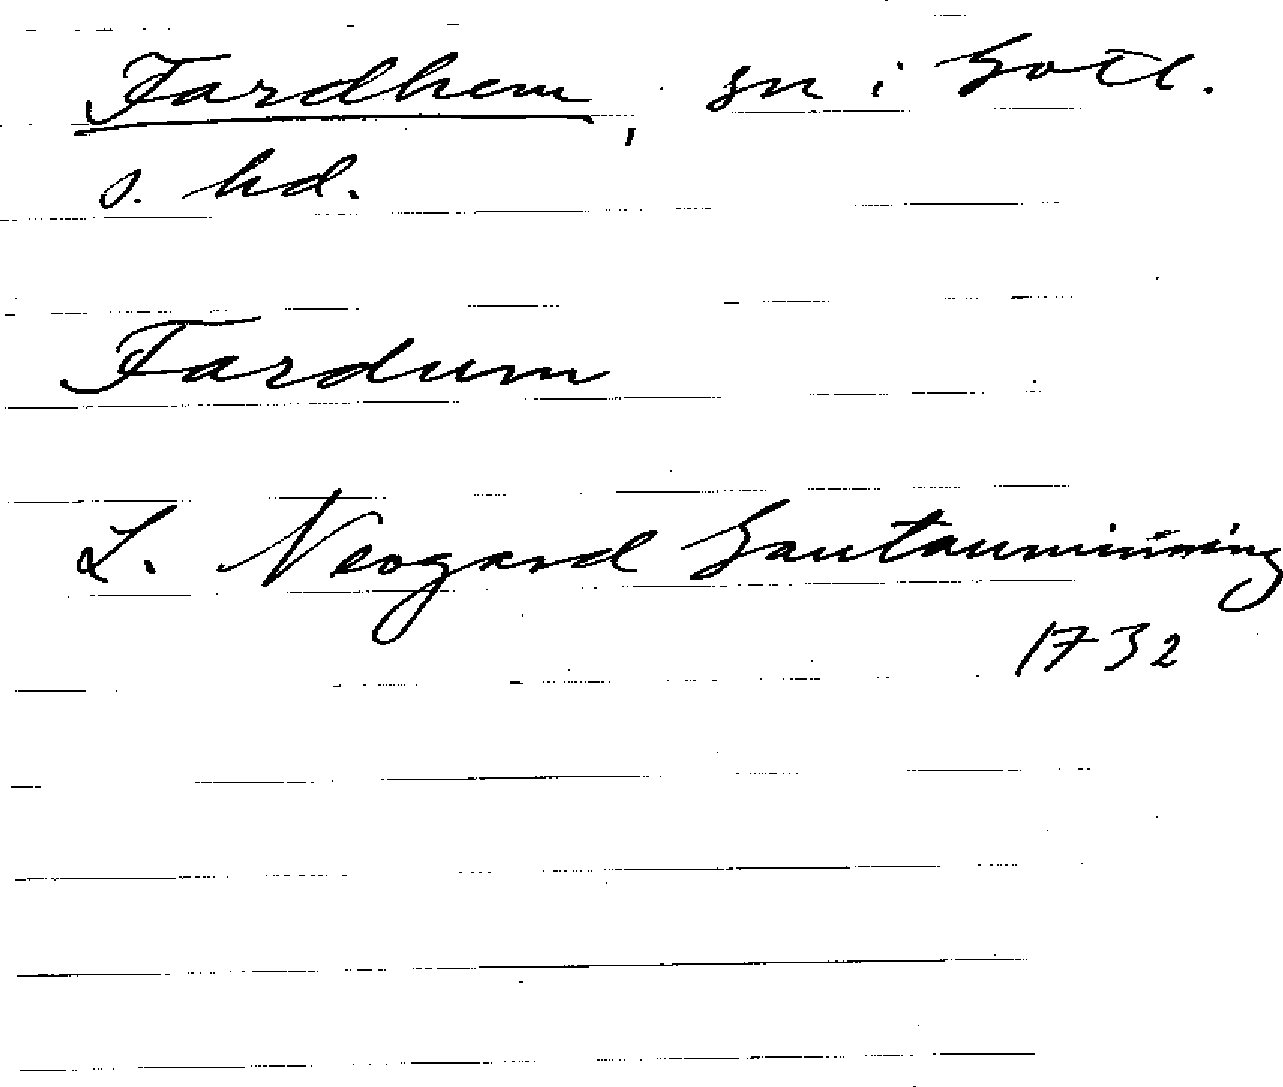 Fardhem, sn i Gotl.
s. hd.
Fardum
L. Neogard Gautauminning
1732